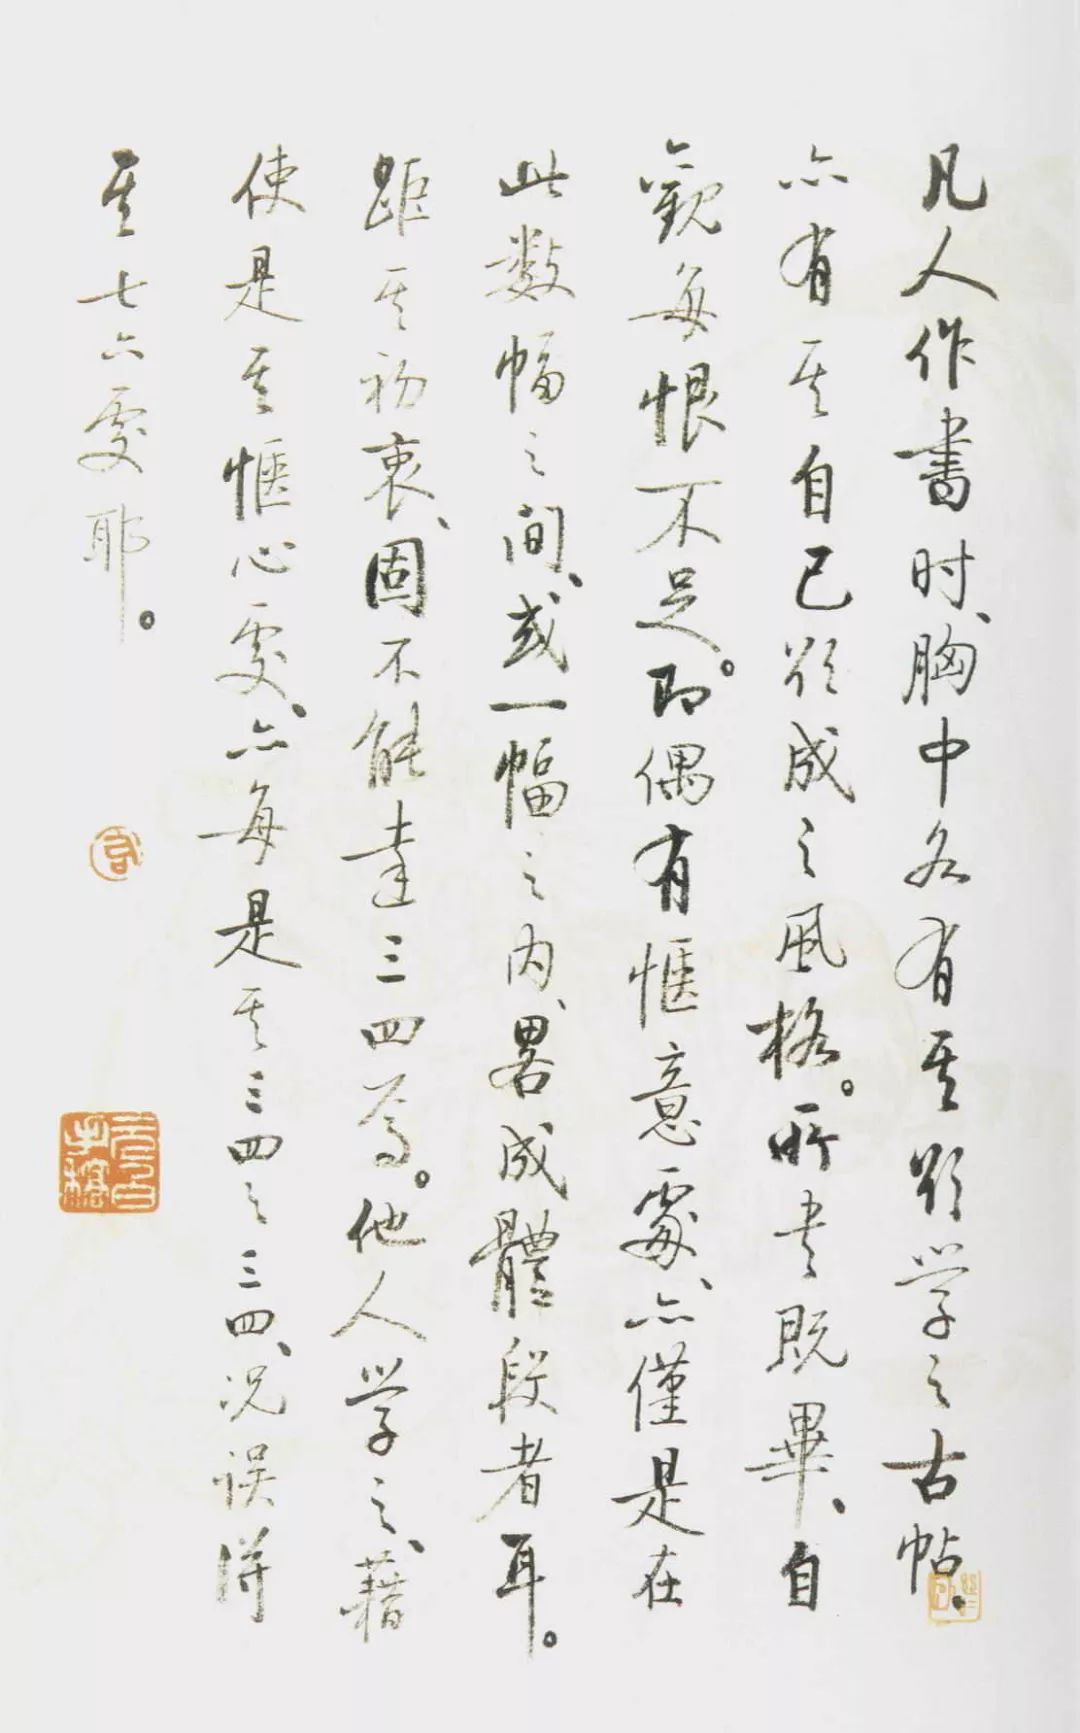 凡人作書时、胸中各有其欲学之古帖、
亦有其自己欲成之风格。所书既畢、自
觀每恨不足。即偶有惬意處、亦僅是在
此数幅之间、或一幅之内、畧成體段者耳。
距其初衷、固不能達三四焉。他人学之、藉
使是其惬心处、亦每是其三四之三四、况误得
其七六处耶。
元白
手稿